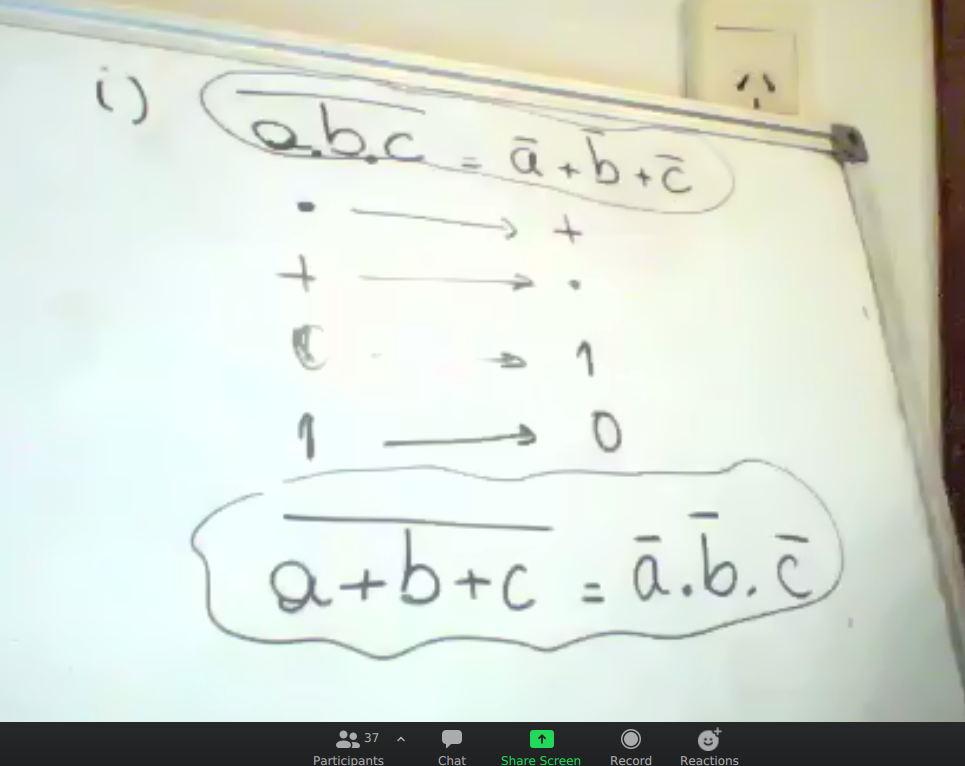 i) \overline{a.b.c} = ā + b̄ + c̄
. → +
+ → .
→ 1
1 → 0
\overline{a+b+c} = ā . b̄ . c̄
37
Participants Chat Share Screen Record Reactions